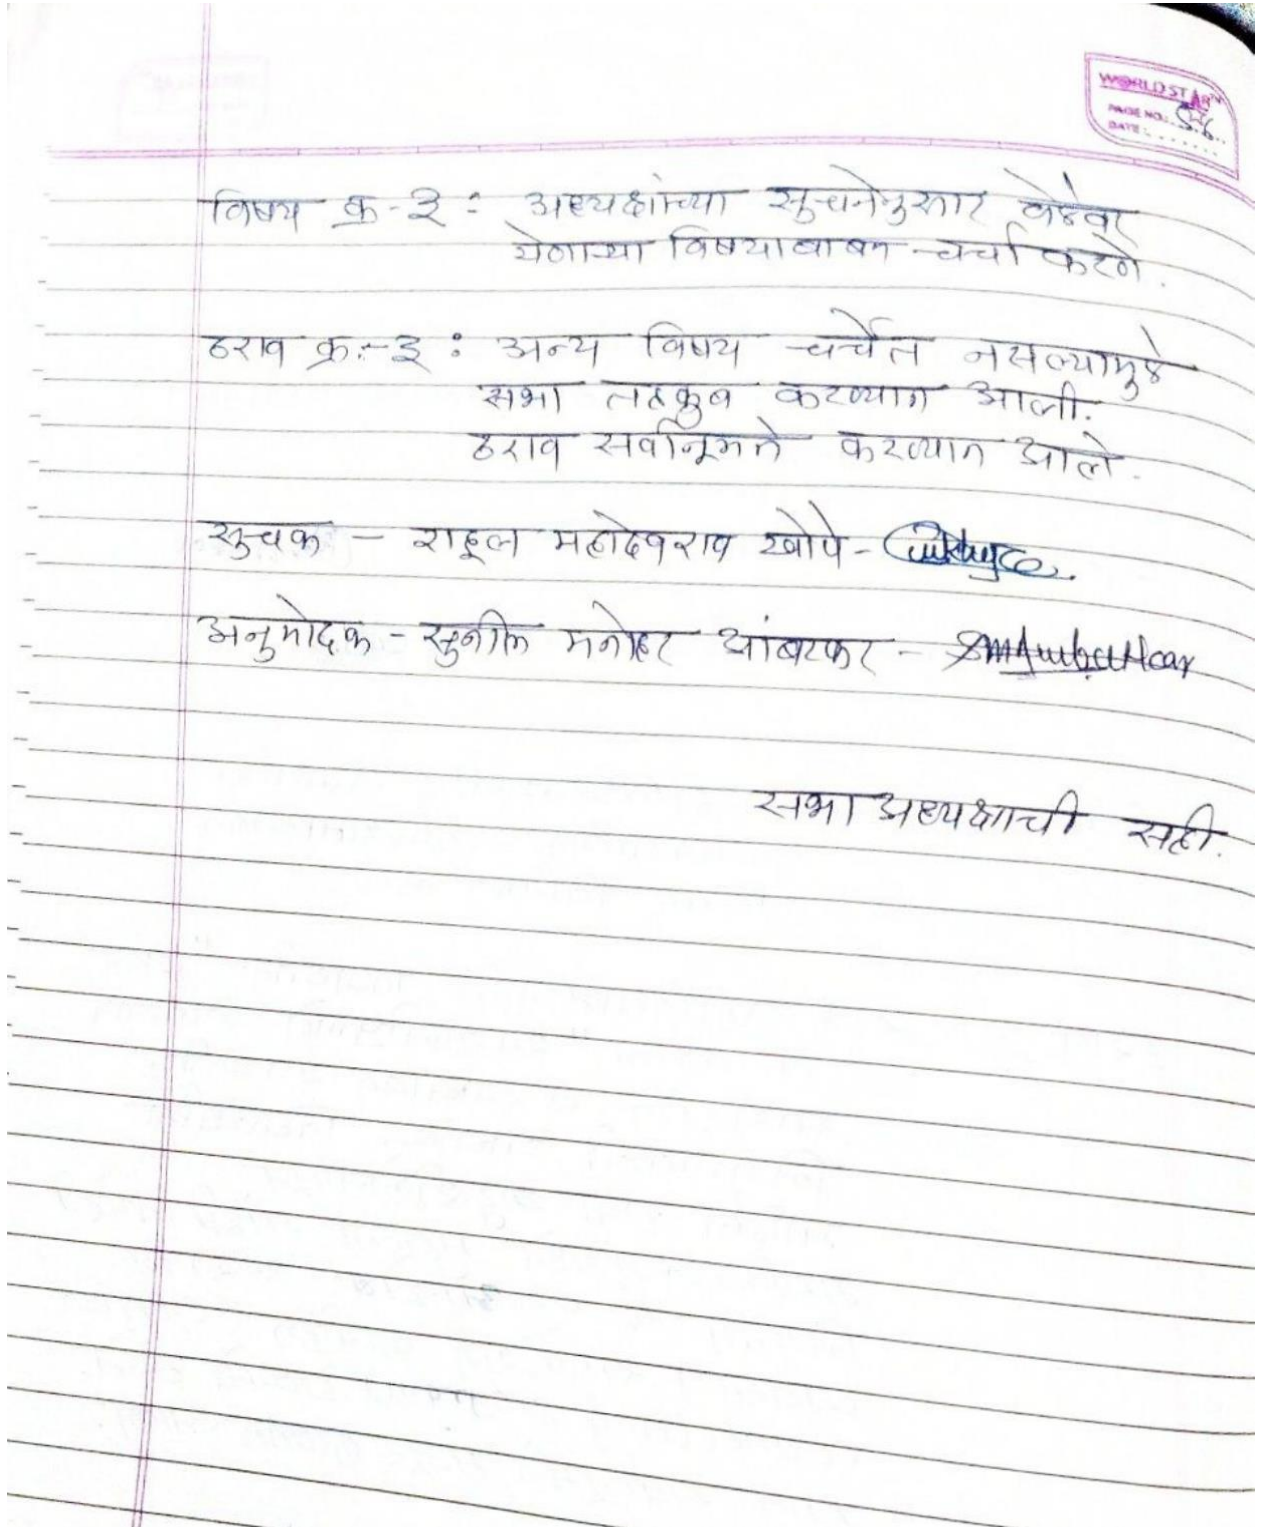 WORLD STAR
PAGE NO.: 56
DATE:
विषय क्र-३ : अध्यक्षांच्या सुचनेनुसार वेळेवर
येणाऱ्या विषयाबाबत चर्चा करणे.
ठराव क्र.-३ : अन्य विषय चर्चेत नसल्यामुळे
सभा तहकुब करण्यात आली.
ठराव सर्वानूमते करण्यात आले.
सुचक - राहूल महादेवराव खोपे -
अनुमोदक - सुनील मनोहर आंबटकर - SMAmbatkar
सभा अध्यक्षाची सही.